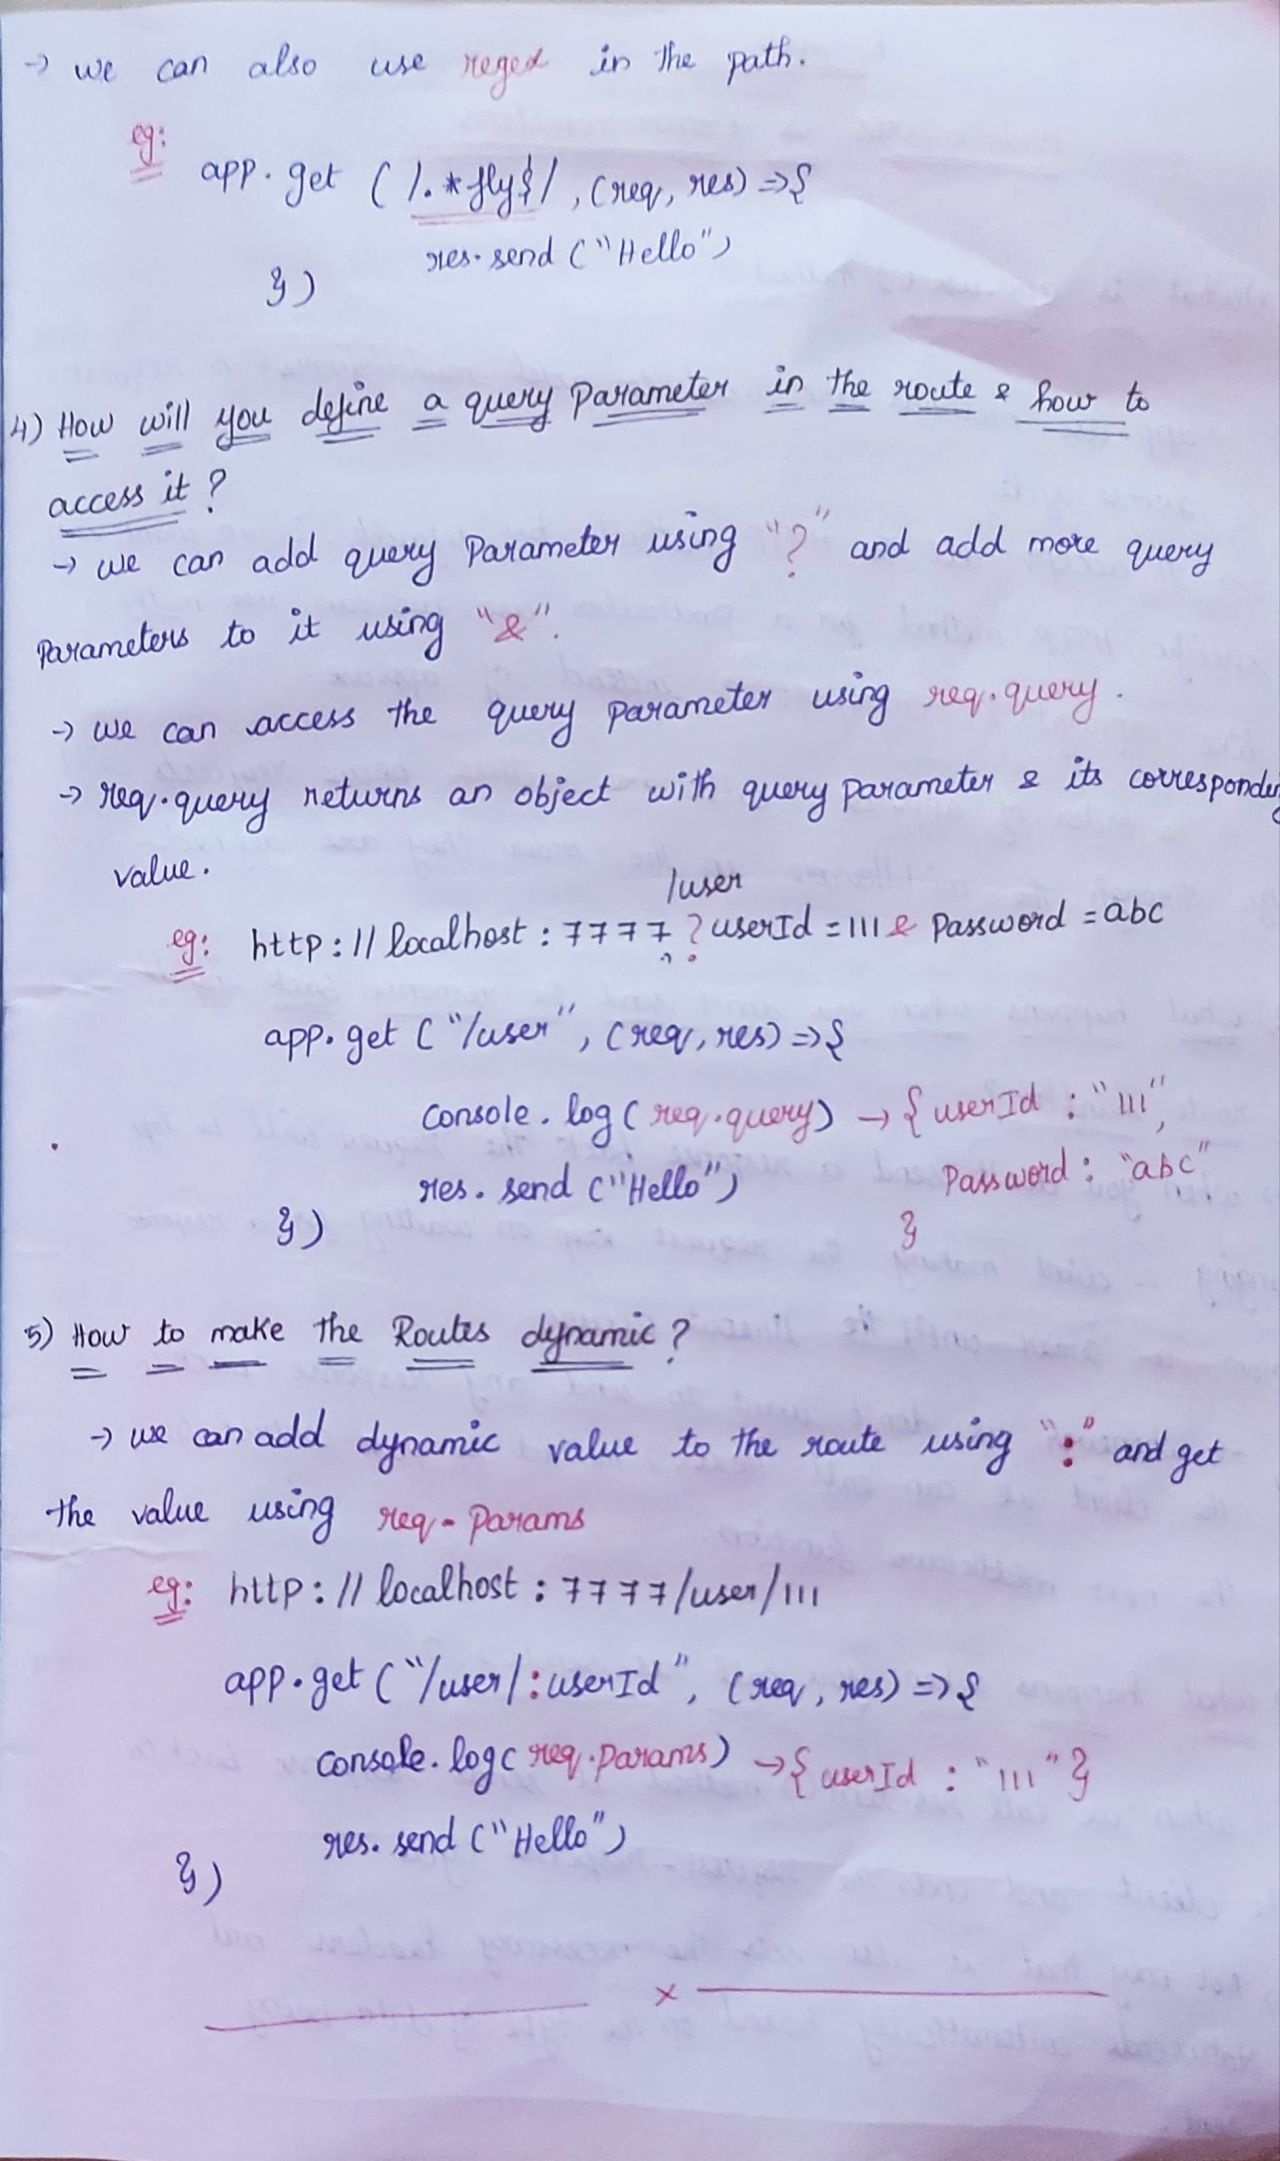 → we can also use regex in the path.
eg:
app.get (/.*fly$/, (req, res) => {
res.send ("Hello")
})
4) How will you define a query Parameter in the route & how to
access it?
→ we can add query Parameter using "?" and add more query
Parameters to it using "&".
→ we can access the query parameter using req.query.
→ req.query returns an object with query parameter & its corresponding
value.
/user
eg: http://localhost:7777?userId=111&Password=abc
app.get ("/user", (req, res) => {
console.log(req.query) → {userId : "111",
res.send ("Hello") Password : "abc"
}) }
5) How to make the Routes dynamic?
→ we can add dynamic value to the route using ":" and get
the value using req-params
eg: http://localhost:7777/user/111
app.get ("/user/:userId", (req, res) => {
console.log(req.params) → {userId : "111"}
res.send ("Hello")
})
x